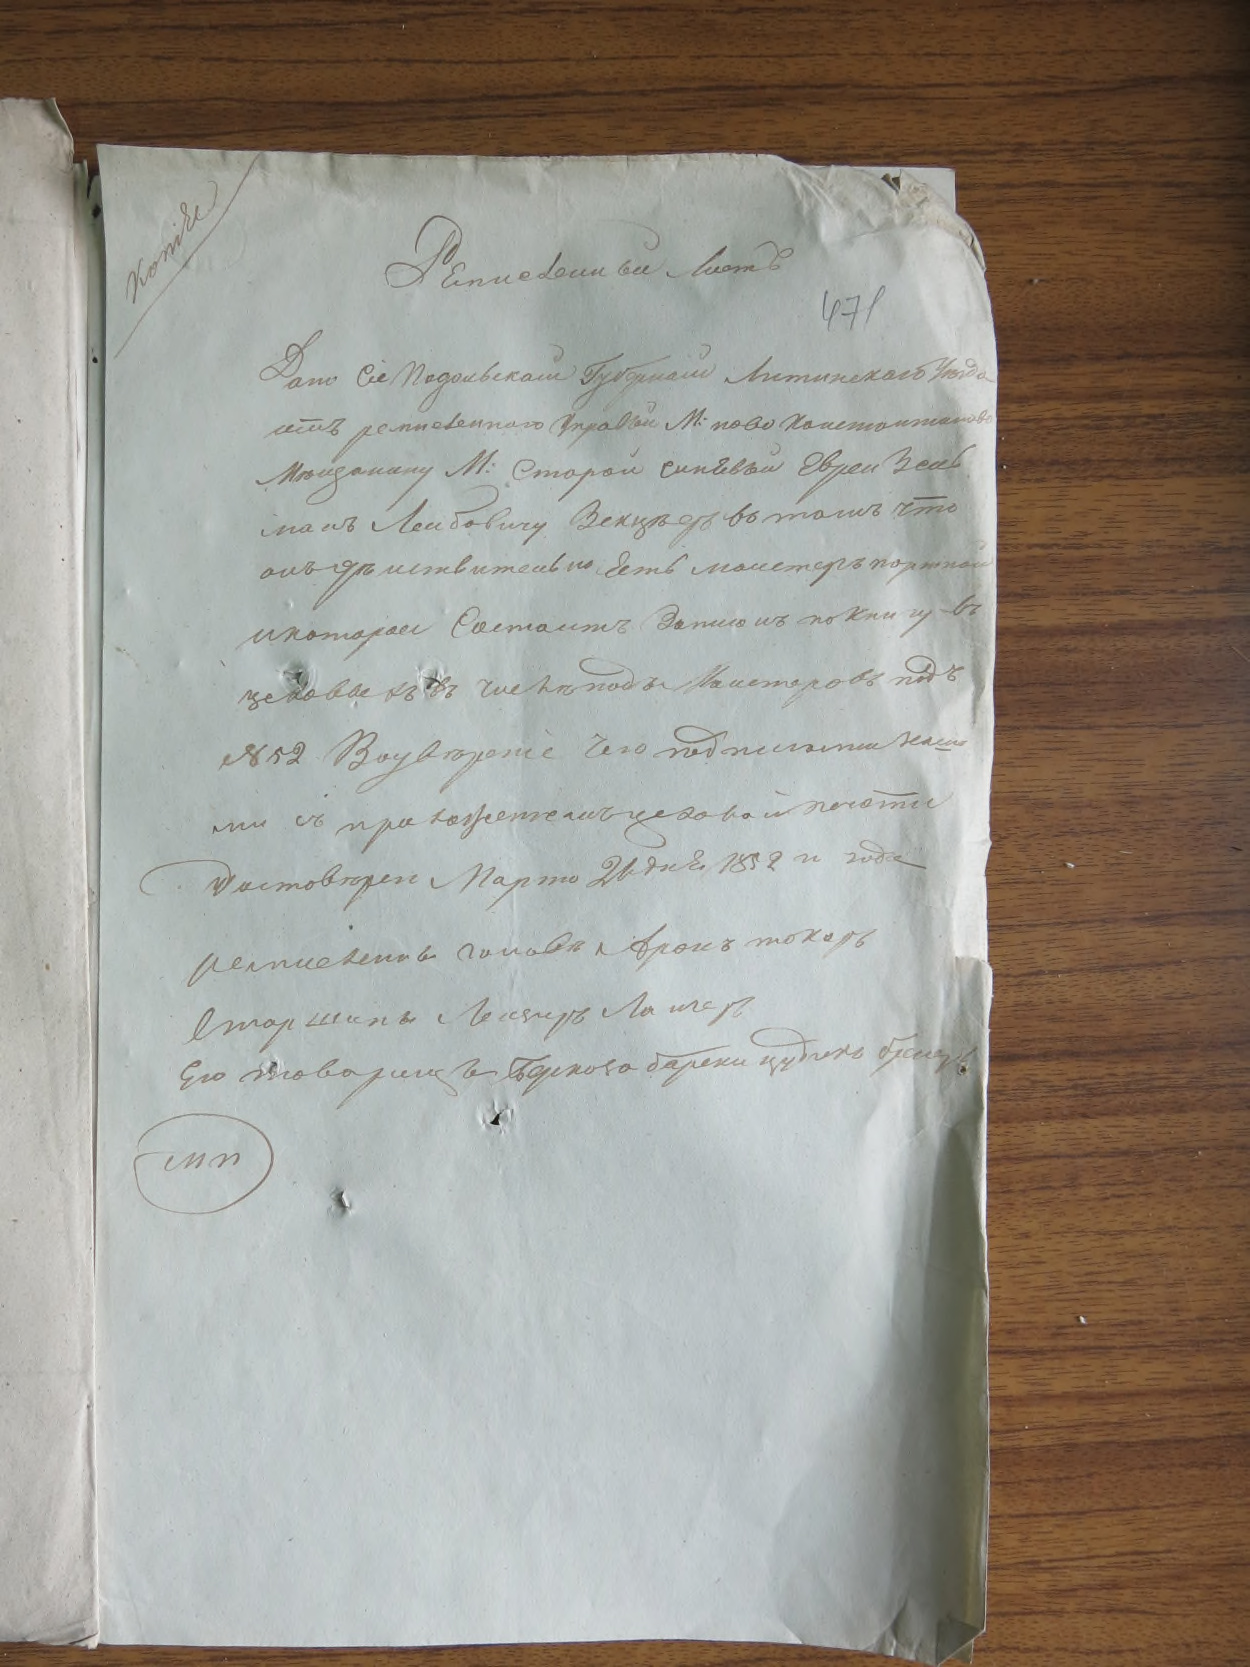 Копія
Ремисленный Листъ
471
Дано Сіе Подольскай Губерніи Литинскаго Уезда
отъ ремисленного Управы М: ново Констонтинова
Мещанину М: Старой Синявы Еврею Зель
манъ Лейбовичу въ томъ что
онъ действительно Есть мастеръ портной
и которои Состоитъ Записанъ по Книгу въ
цеховые въ числе Мастеровъ подъ
№ 52 Воуверение Чего подписами наши
ми съ приложениемъ цеховой печати
Удостоверен Марта 21 дня 1852 го года
ремислены голова Аронъ токаръ
Старшина
Его товарищъ Берко
МП